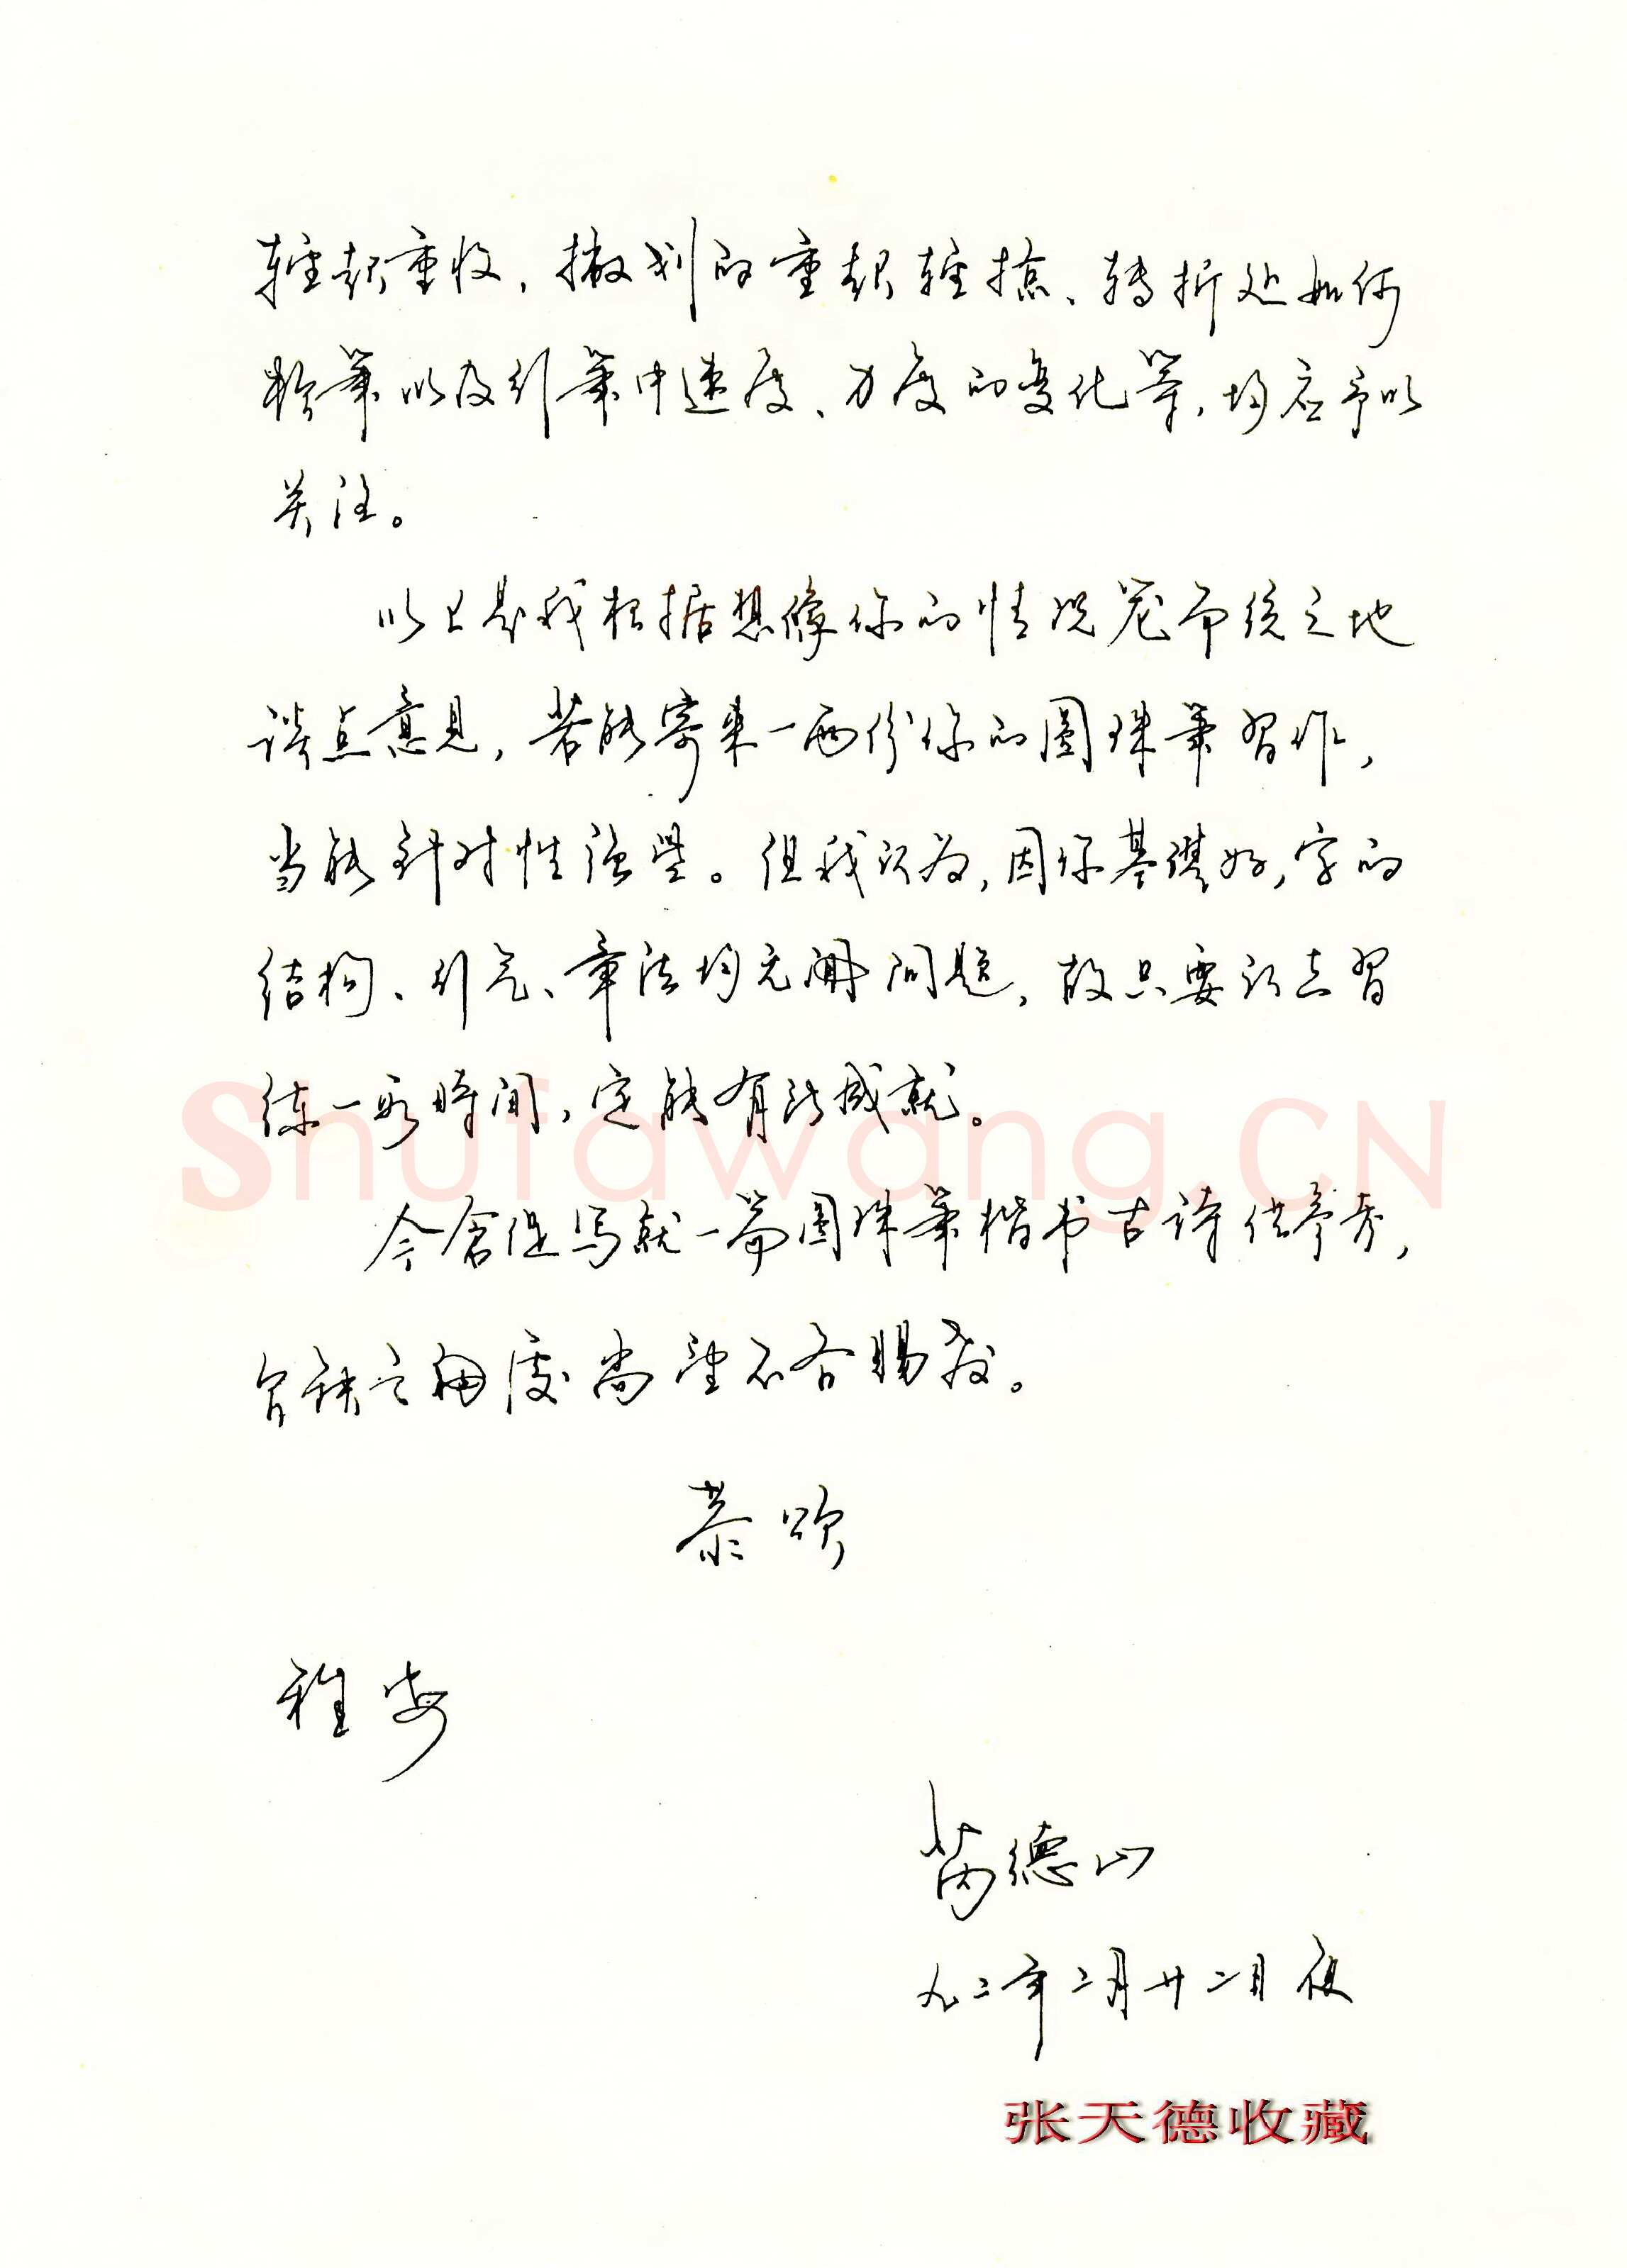 轻起重收，撇划的重起轻掠、转折处如何
驻笔以及引笔中速度、力度的变化等，均应予以
关注。
以上是我根据想像你的情况笼而统之地
谈点意见，若能寄来一两份你的圆珠笔习作，
当能针对性强些。但我认为，因你基礎好，字的
结构、引气、章法均无问题，故只要认真习
练一段時间，定能有所成就。
今倉促写就一篇圆珠笔楷书古诗供参考，
欠缺之處尚望不吝賜教。
恭颂
雅安
芮德山
九二年二月廿二日夜
Shufawang.CN
张天德收藏